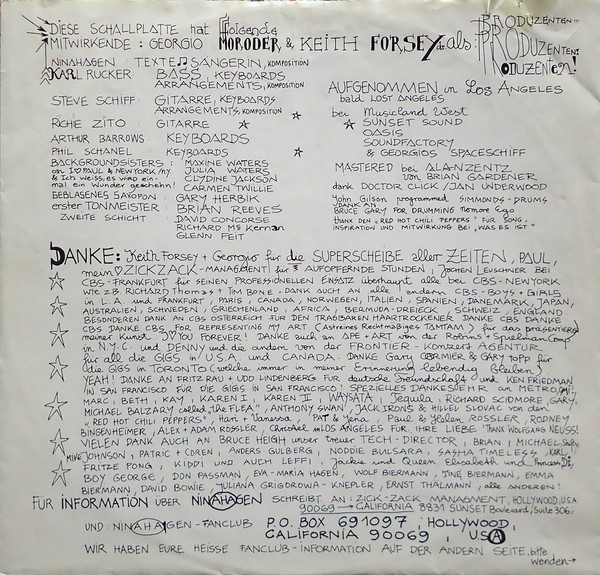 DIESE SCHALLPLATTE hat folgende
MITWIRKENDE: GEORGIO MORODER & KEITH FORSEY als: PRODUZENTEN!!!
PRODUZENTEN!
PRODUZENTEN!
NINAHAGEN: TEXTE SÄNGERIN, KOMPOSITION
KARL RUCKER: BASS, KEYBOARDS
ARRANGEMENTS, KOMPOSITION
STEVE SCHIFF: GITARRE, KEYBOARDS
ARRANGEMENTS, KOMPOSITION
RICHIE ZITO: GITARRE
ARTHUR BARROWS: KEYBOARDS
PHIL SCHANEL KEYBOARDS
BACKGROUNDSISTERS: MAXINE WATERS
on I ♡ PAUL & NEW YORK/NY. JULIA WATERS
& Ich WEISS, ES WIRD EIN- CLYDINE JACKSON
mal ein Wunder geschehn! CARMEN TWILLIE
GEBLASENES SAXOFON: GARY HERBIK
erster TONMEISTER: BRIAN REEVES
ZWEITE SCHICHT: DAVID CONCORSE
RICHARD Ms Kernan
GLENN FEIT
AUFGENOMMEN in LOS ANGELES
bald LOST ANGELES
bei Musicland West
SUNSET SOUND
OASIS
SOUNDFACTORY
& GEORGIOS SPACESCHIFF
MASTERED bei ALLAN ZENTZ
von BRIAN GARDENER
dank DOCTOR CLICK / JAN UNDERWOOD
John Gilson programmed SIMMONDS-DRUMS
DANK AN
BRUCE GARY FOR DRUMMING Nomore Ego
thank DEN "RED HOT CHILI PEPPERS" FÜR SONG,
INSPIRATION UND MITWIRKUNG BEI "WAS ES IST"
DANKE: Keith FORSEY + Georgio für die SUPERSCHEIBE aller ZEITEN, PAUL,
mein ♡ ZICKZACK-MANAGMENT für AUFOPFERNDE STUNDEN, JOCHEN LEUSCHNER BEI
CBS-FRANKFURT für SEINEN PROFESSIONELLEN EINSATZ überhaupt alle bei CBS-NEW YORK
wie z.B. RICHARD Thomas + TIM BONE. DANK AUCH an alle andern CBS-BOYS + GIRLS
in L.A. und FRANKFURT, PARIS, CANADA, NORWEGEN, ITALIEN, SPANIEN, DÄNEMARK, JAPAN,
AUSTRALIEN, SCHWEDEN, GRIECHENLAND, AFRICA, BERMUDA-DREIECK, SCHWEIZ, ENGLAND
BESONDEREN DANK AN CBS OSTERREICH FÜR DEN TRAGBAREN HAARTROCKENER. DANKE CBS DANKE
CBS DANKE CBS FOR REPRESENTING MY ART (Astreines Rechtmäßiges TAMTAM) für das präsentieren
meiner Kunst. I ♡ YOU FOREVER! DANKE auch an APE + ART von der Robins + Spielman Comp.
in N.Y.C. und DENNY und die andern von der FRONTIER-KONZERT AGENTUR
für all die GIGS in U.S.A. und CANADA. DANKE Gary CORMIER & GARY TOPP für
die GIGS in TORONTO (welche immer in meiner Erinnerung lebendig Bleiben)
YEAH! DANKE AN FRITZ RAU + UDO LINDENBERG für deutsche Freundschaft und KEN FRIEDMAN
IN SAN FRANCISCO FÜR DIE GIGS IN SAN FRANCISCO! SPEZIELLES DANKESEHR an METRO,
MARC, BETH, KAY, KAREN I, KAREN II, WAYSATA, Tequila, RICHARD SCIDMORE, GARY,
MICHAEL BALZARY called "the FLEA", ANTHONY SWAN, JACK IRONS & HILLEL SLOVAC von den
"RED HOT CHILI PEPPERS", Hari + Vanessa, PAT + Jena, Paul & Helen RÖSSLER, RODNEY
BINGENHEIMER, ALEX + ADAM RÖSSLER, Christoph in LOS ANGELES FÜR IHRE LIEBE. THANK WOLFGANG NEUSS!
VIELEN DANK AUCH AN BRUCE HEIGH unser treuer TECH-DIRECTOR, BRIAN, MICHAEL
MIKE JOHNSON, PATRIC + COREN, ANDERS GULBERG, NODDIE BULSARA, SASHA TIMELESS, KARL,
FRITZE PONG, KIDDI UND AUCH LEFFI, Jackie und Queen Elisabeth und Princess Di,
BOY GEORGE, DON PASSMAN, EVA-MARIA HAGEN, WOLF BIERMANN, TINE BIERMANN, EMMA
BIERMANN, DAVID BOWIE, JULIANA GRIGOROWA-KNEPLER, ERNST THÄLMANN, alle anderen!
FÜR INFORMATION über NINAHAGEN SCHREIBT AN: ZICK-ZACK MANAGMENT, HOLLYWOOD, U.S.A.
90069 CALIFORNIA 8831 SUNSET Boulevard, Suite 306,
UND NINAHAGEN-FANCLUB P.O. BOX 691097, HOLLYWOOD,
CALIFORNIA 90069, USA
WIR HABEN EURE HEISSE FANCLUB-INFORMATION AUF DER ANDERN SEITE, bitte
wenden→